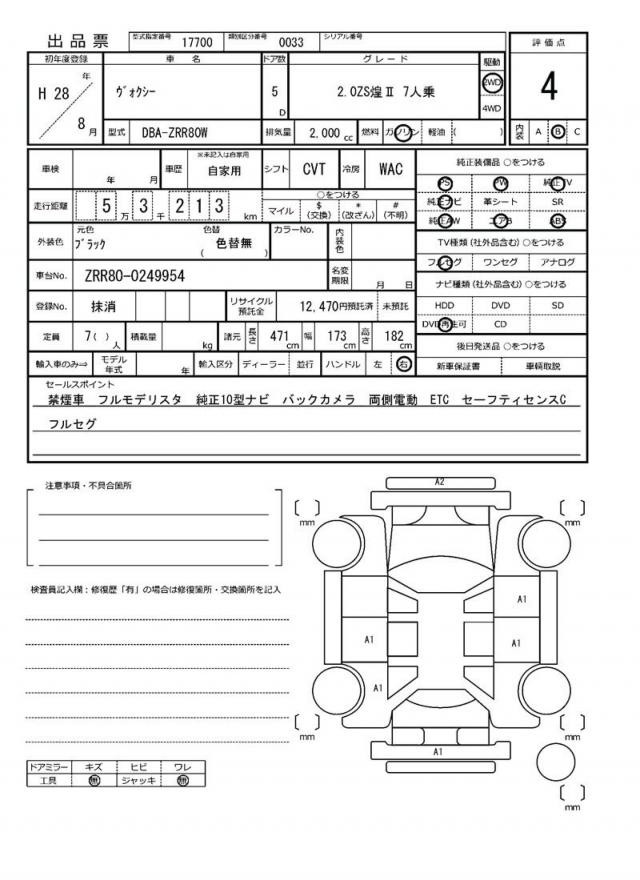 出品票 型式指定番号 17700 類別区分番号 0033 シリアル番号
評価点
4
内装 A B C
初年度登録 車名 ドア数 グレード 駆動
H 28 年 8 月 ヴォクシー 5 D 2.0ZS煌Ⅱ 7人乗 2WD
4WD
型式 DBA-ZRR80W 排気量 2,000 cc 燃料 ガソリン 軽油 ( )
車検 年 月 車歴 ※未記入は自家用 自家用 シフト CVT 冷房 WAC
走行距離 5 万 3 千 2 1 3 km
○をつける
マイル $ (交換) * (改ざん) # (不明)
外装色 元色 ブラック 色替 ( 色替無 ) カラーNo. 内装色
車台No. ZRR80-0249954 名変期限 月 日
登録No. 抹消 リサイクル預託金 12,470円預託済 未預託
定員 7( ) 人 積載量 kg 諸元 長さ 471 cm 幅 173 cm 高さ 182 cm
輸入車のみ⇒ モデル年式 年 輸入区分 ディーラー 並行 ハンドル 左 右
純正装備品 ○をつける
PS PW 純正TV
純正ナビ 革シート SR
純正AW エアB ABS
TV種類 (社外品含む) ○をつける
フルセグ ワンセグ アナログ
ナビ種類 (社外品含む) ○をつける
HDD DVD SD
DVD再生可 CD
後日発送品 ○をつける
新車保証書 車輌取説
セールスポイント
禁煙車 フルモデリスタ 純正10型ナビ バックカメラ 両側電動 ETC セーフティセンスC
フルセグ
注意事項・不具合箇所
検査員記入欄：修復歴「有」の場合は修復箇所・交換箇所を記入
ドアミラー キズ ヒビ ワレ
工具 無 ジャッキ 無
A2
mm
mm
A1
A1
A1
A1
mm
mm
A1
mm